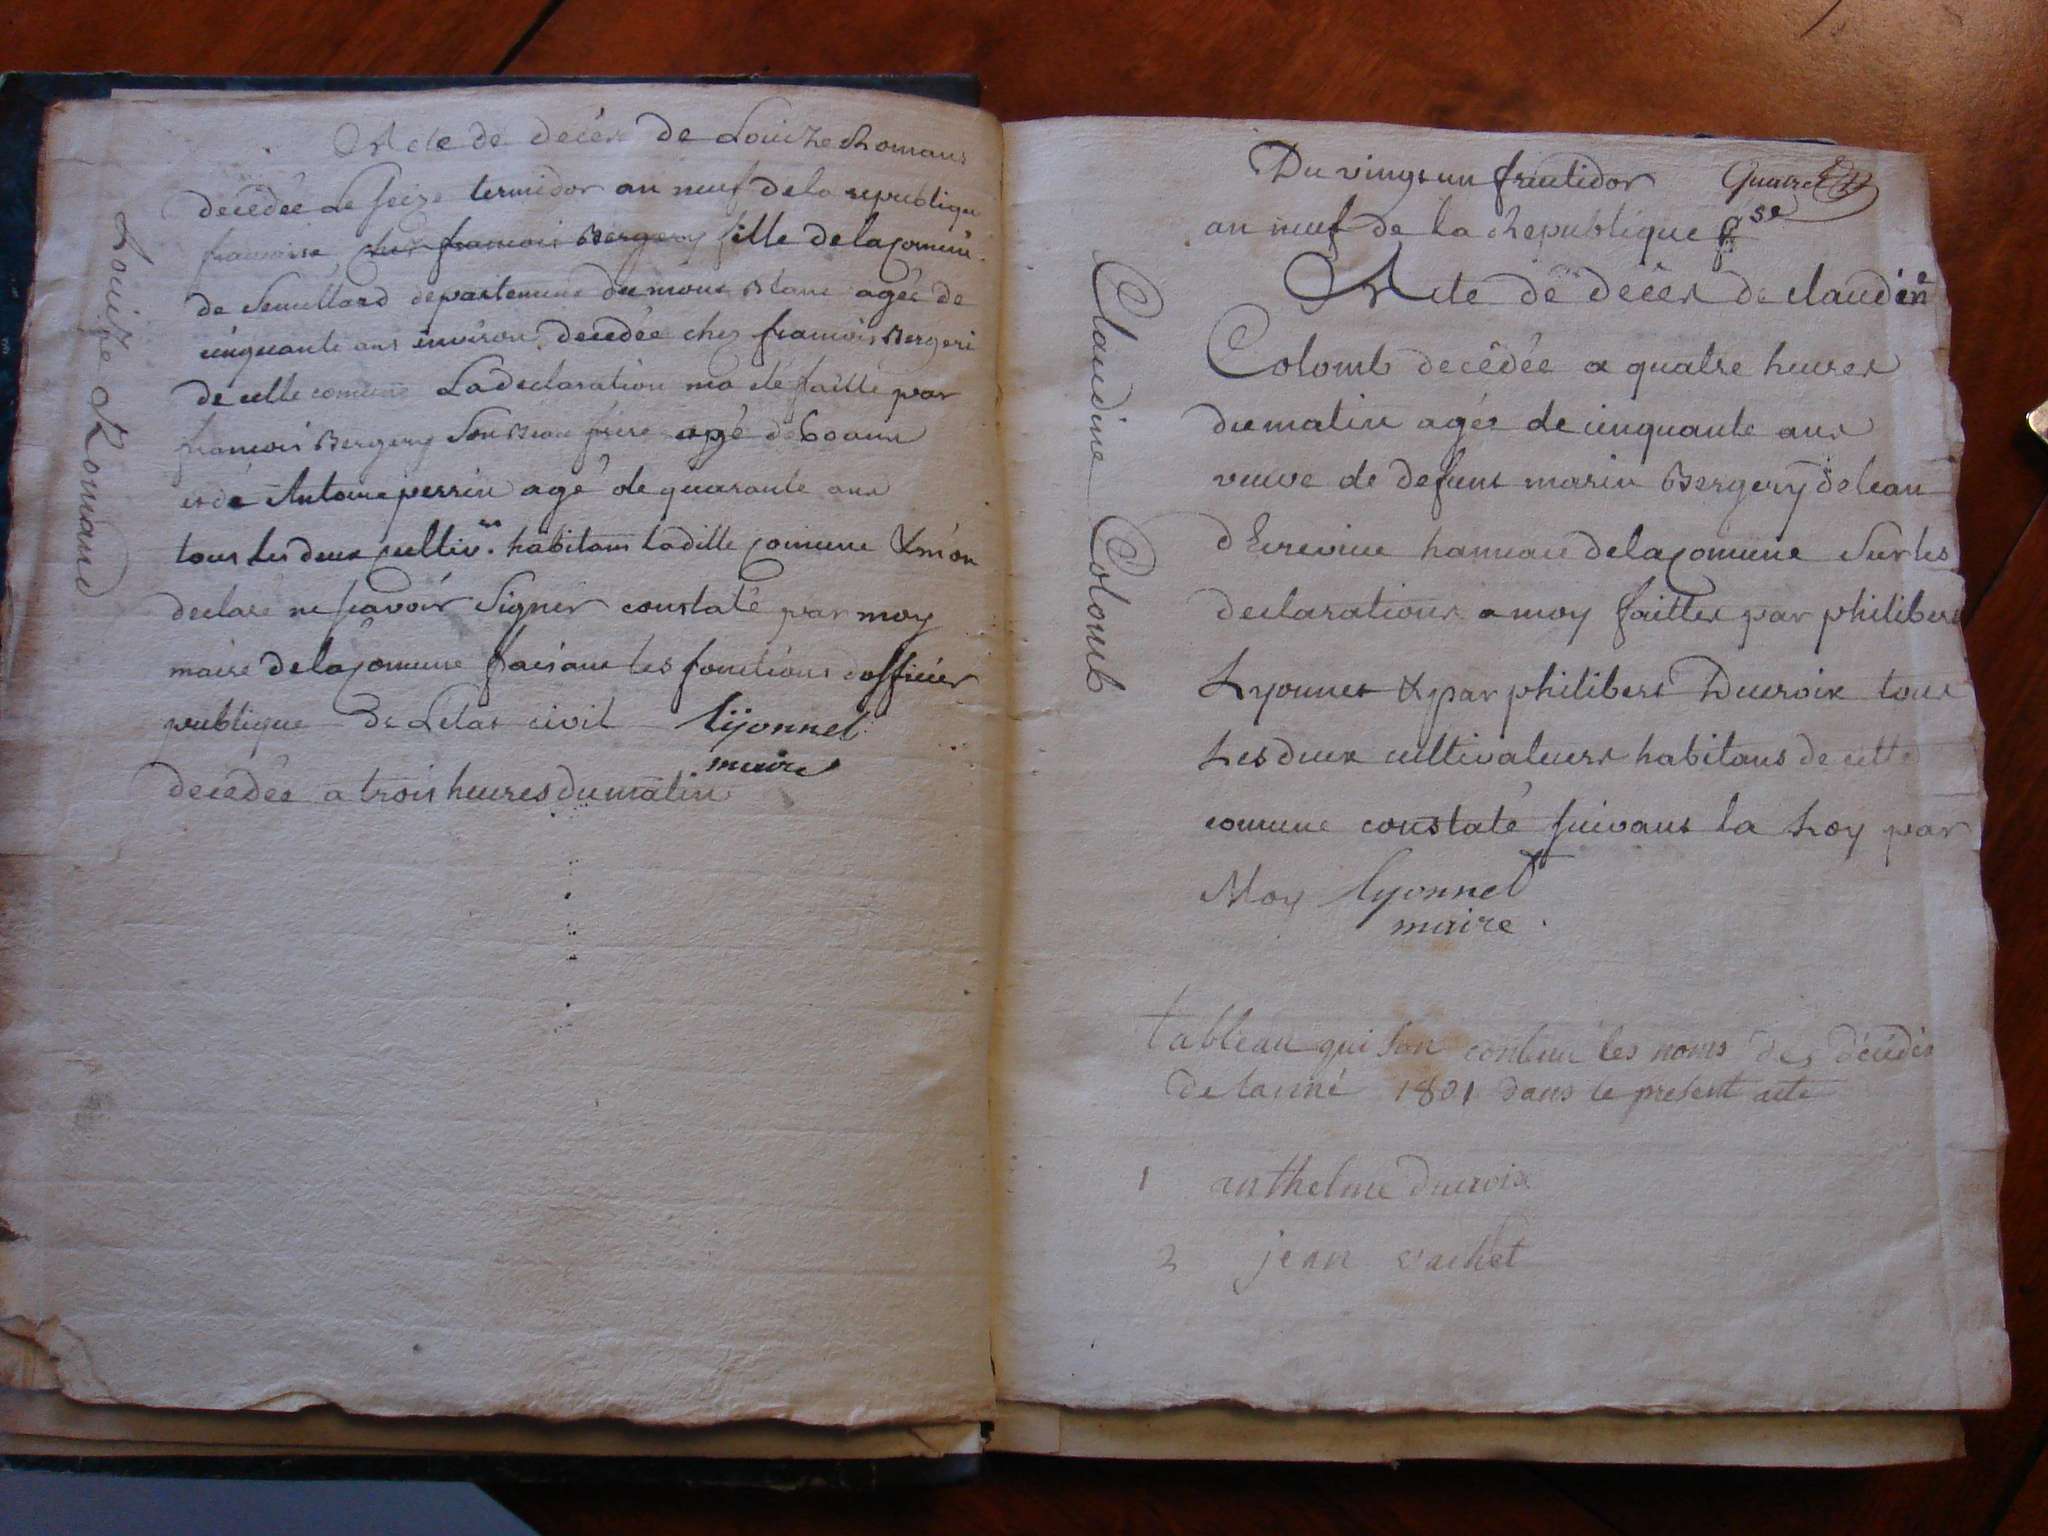 Louize Romand
Acte de decès de Louize Romans
decédée Le seize termidor an neuf de la republique
francoise chez francois Bergery fille de la comune
de Semillard departement du mont Blanc agée de
cinquante ans environ decedée chez francois Bergeri
de cette comune La declaration ma eté faitte par
francois Bergery Son Beau frere agé de 60 ans
et de Antoine perrin agé de quarante ans
tous Les deux cultiv.rs habitans laditte comune & m'on
declaré ne scavoir Signer constaté par moy
maire de la comune faisant les fonctions dofficier
publique de Letat civil lyonnet
maire
decédée a trois heures du matin
Claudine Colomb
Du vingt un fructidor
an neuf de la Republique fse
Acte de decès de claudine
Colomb decédée a quatre heures
du matin agée de cinquante ans
veuve de defunt marin Bergery de lean
d'Evrevine hameau de la comune Sur les
declarations a moy faittes par philibert
Lyonnet & par philibert Ducroix tous
Les deux cultivateurs habitans de cette
comune constaté suivant la Loy par
Moy lyonnet
maire.
tableau qui Son contenu les noms des décédés
de lanné 1801 dans le present acte
1 anthelme ducroix
2 jean vachet